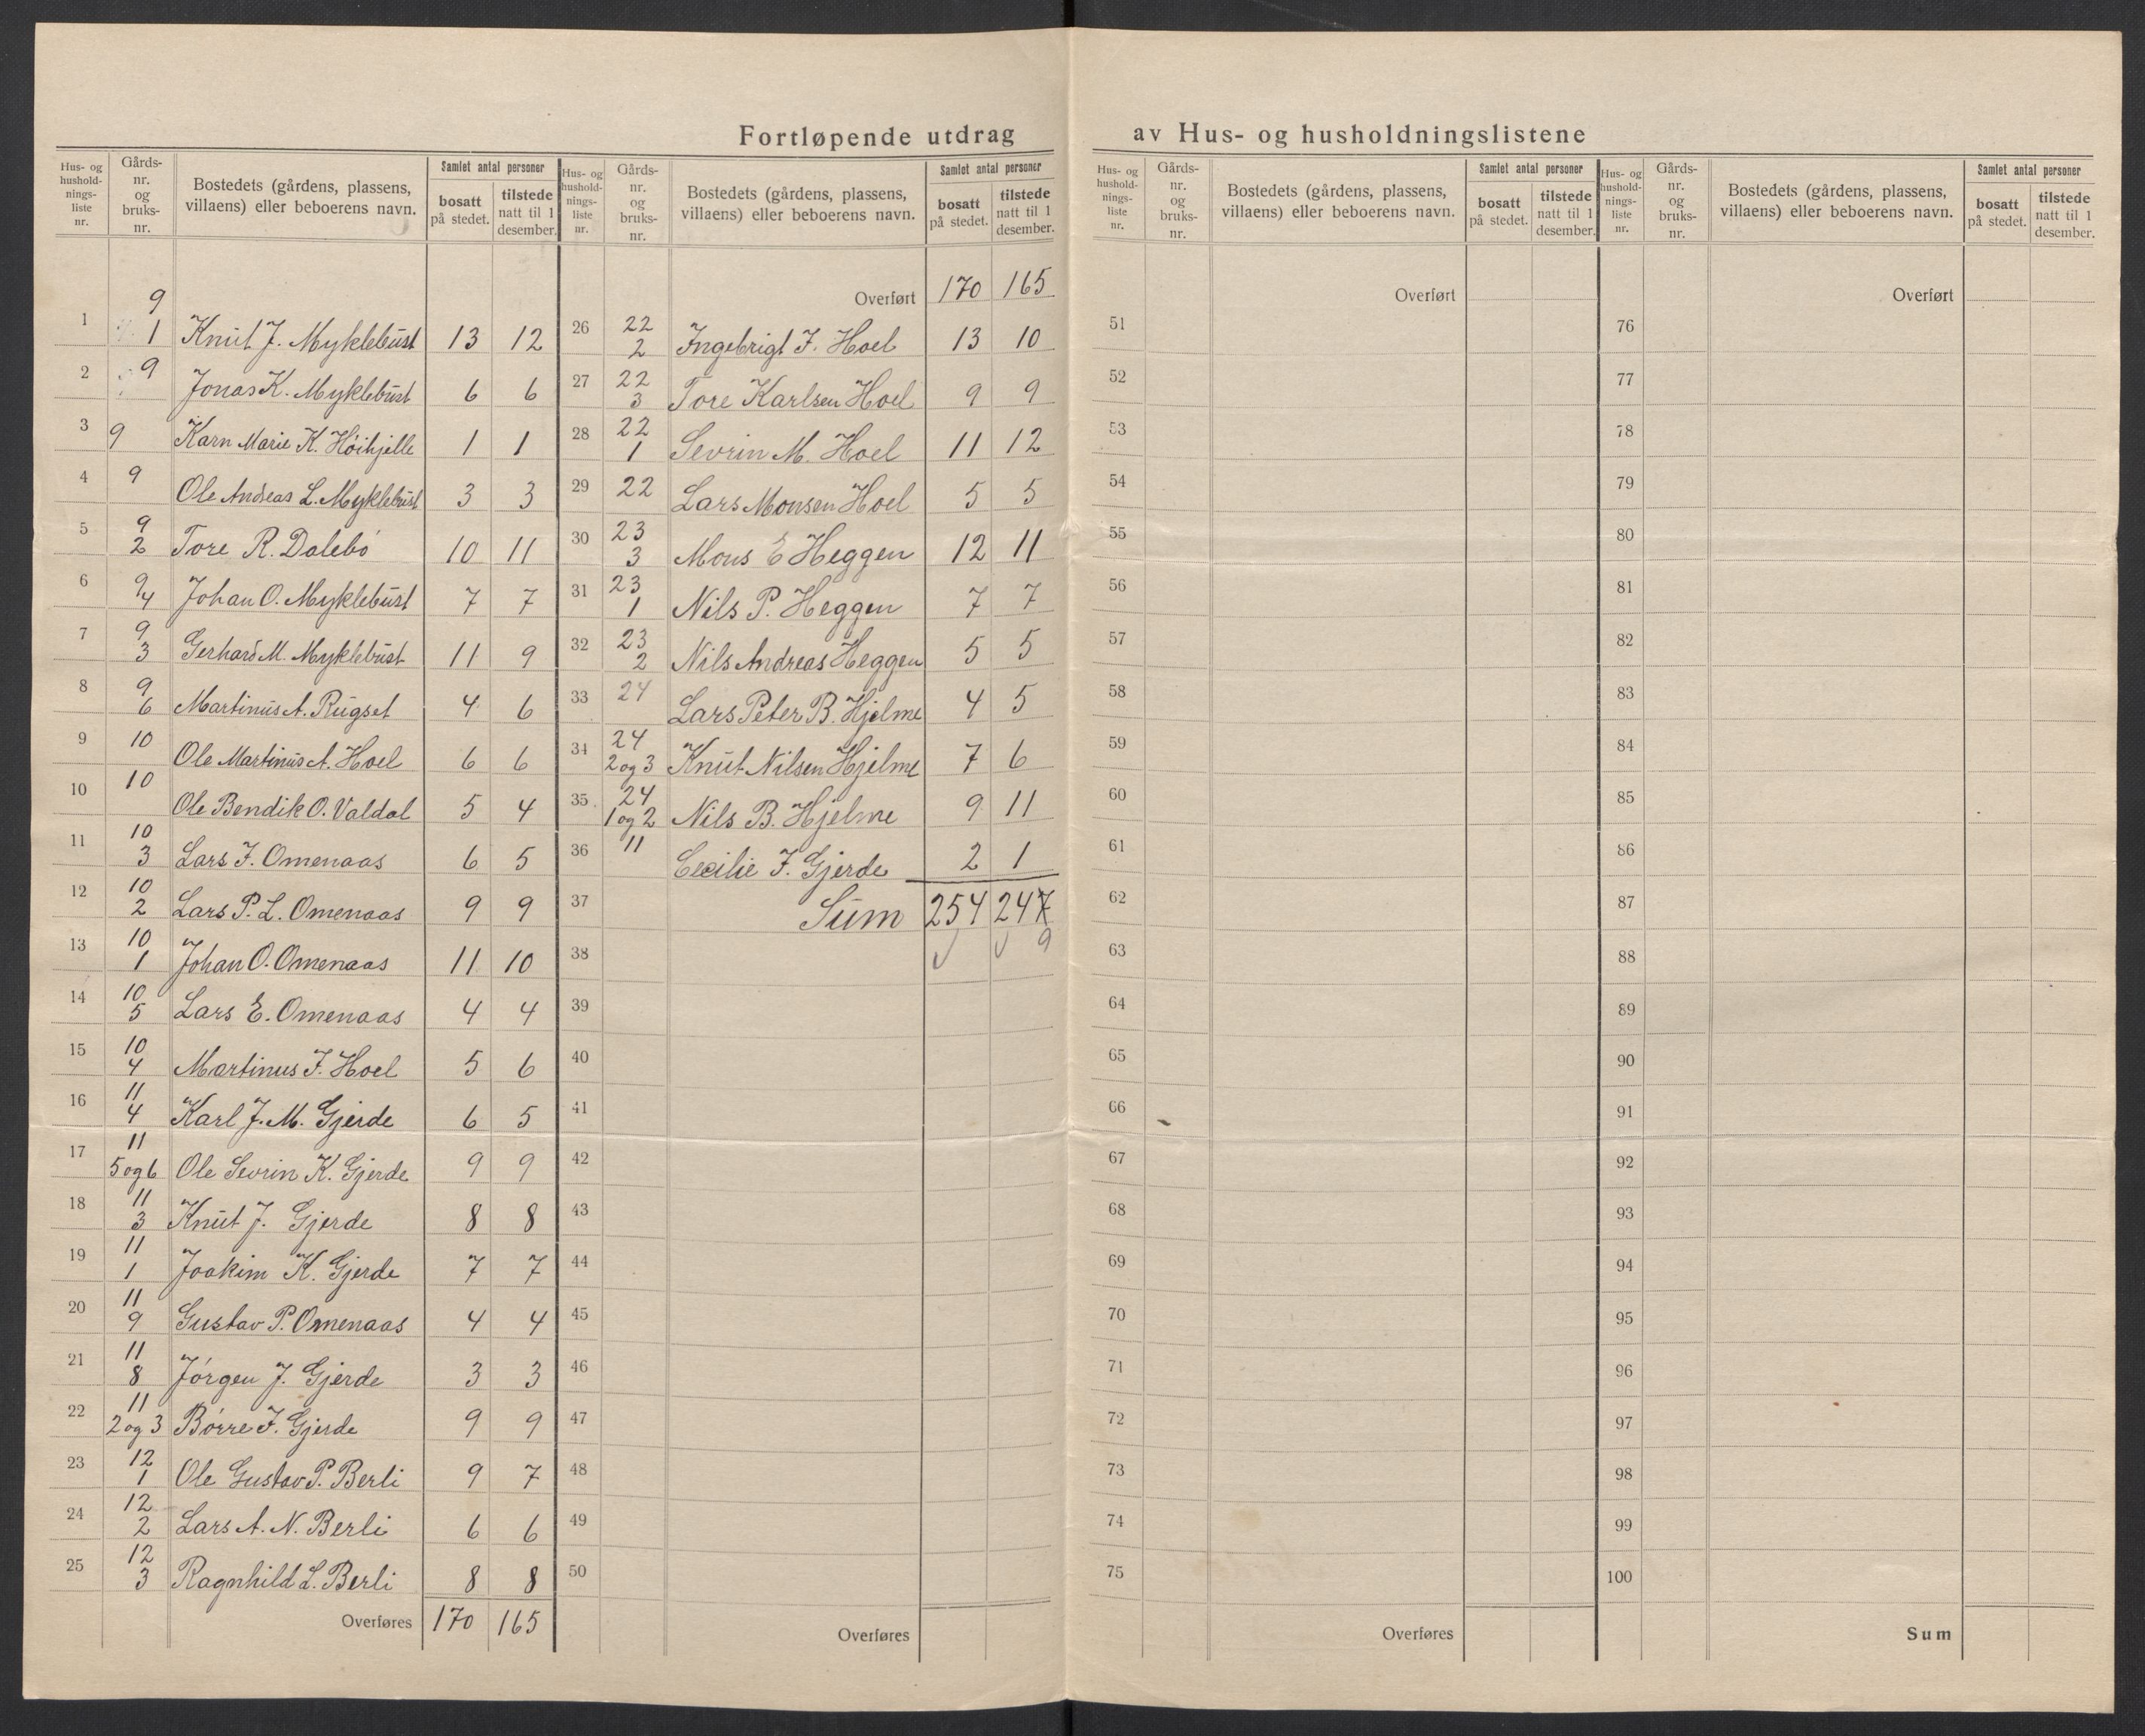 Fortløpende utdrag av Hus- og husholdningslistene
Hus- og husholdnings-liste nr. | Gårds-nr. og bruks-nr. | Bostedets (gårdens, plassens, villaens) eller beboerens navn. | Samlet antal personer | bosatt på stedet. | tilstede natt til 1 desember.
1 | 9 1 | Knut J. Myklebust | 13 | 12
2 | 9 | Jonas K. Myklebust | 6 | 6
3 | 9 | Karn Marie K. Höihjelle | 1 | 1
4 | 9 | Ole Andreas L. Myklebust | 3 | 3
5 | 9 2 | Tore R. Dalebó | 10 | 11
6 | 9 4 | Johan O. Myklebust | 7 | 7
7 | 9 3 | Gerhard M. Myklebust | 11 | 9
8 | 9 6 | Martinus A. Rugset | 4 | 6
9 | 10 | Ole Martinus A. Hoel | 6 | 6
10 | 10 | Ole Bendik O. Valdal | 5 | 4
11 | 10 3 | Lars J. Omenaas | 6 | 5
12 | 10 2 | Lars P. L. Omenaas | 9 | 9
13 | 10 1 | Johan O. Omenaas | 11 | 10
14 | 10 5 | Lars E. Omenaas | 4 | 4
15 | 10 4 | Martinus J. Hoel | 5 | 6
16 | 11 4 | Karl J. M. Gjerde | 6 | 5
17 | 11 5 og 6 | Ole Sevrin K. Gjerde | 9 | 9
18 | 11 3 | Knut J. Gjerde | 8 | 8
19 | 11 1 | Joakim K. Gjerde | 7 | 7
20 | 11 9 | Gustav P. Omenaas | 4 | 4
21 | 11 8 | Jórgen J. Gjerde | 3 | 3
22 | 11 2 og 3 | Bórre J. Gjerde | 9 | 9
23 | 12 1 | Ole Gustav P. Berli | 9 | 7
24 | 12 2 | Lars A. N. Berli | 6 | 6
25 | 12 3 | Ragnhild L. Berli | 8 | 8
Overføres | 170 | 165
Hus- og husholdnings-liste nr. | Gårds-nr. og bruks-nr. | Bostedets (gårdens, plassens, villaens) eller beboerens navn. | Samlet antal personer | bosatt på stedet. | tilstede natt til 1 desember.
Overført | 170 | 165
26 | 22 2 | Ingebrigt J. Hoel | 13 | 10
27 | 22 3 | Tore Karlsen Hoel | 9 | 9
28 | 22 1 | Sevrin M. Hoel | 11 | 12
29 | 22 | Lars Monsen Hoel | 5 | 5
30 | 23 3 | Mons E Heggen | 12 | 11
31 | 23 1 | Nils P. Heggen | 7 | 7
32 | 23 2 | Nils Andreas Heggen | 5 | 5
33 | 24 | Lars Peter B. Hjelme | 4 | 5
34 | 24 2 og 3 | Knut Nilsen Hjelme | 7 | 6
35 | 24 1 og 2 | Nils B. Hjelme | 9 | 11
36 | 11 | Cecilie J. Gjerde | 2 | 1
37 | Sum | 254 | 247
38 | 9
39
40
41
42
43
44
45
46
47
48
49
50
Overføres
Hus- og husholdnings-liste nr. | Gårds-nr. og bruks-nr. | Bostedets (gårdens, plassens, villaens) eller beboerens navn. | Samlet antal personer | bosatt på stedet. | tilstede natt til 1 desember.
Overført
51
52
53
54
55
56
57
58
59
60
61
62
63
64
65
66
67
68
69
70
71
72
73
74
75
Overføres
Hus- og husholdnings-liste nr. | Gårds-nr. og bruks-nr. | Bostedets (gårdens, plassens, villaens) eller beboerens navn. | Samlet antal personer | bosatt på stedet. | tilstede natt til 1 desember.
Overført
76
77
78
79
80
81
82
83
84
85
86
87
88
89
90
91
92
93
94
95
96
97
98
99
100
Sum